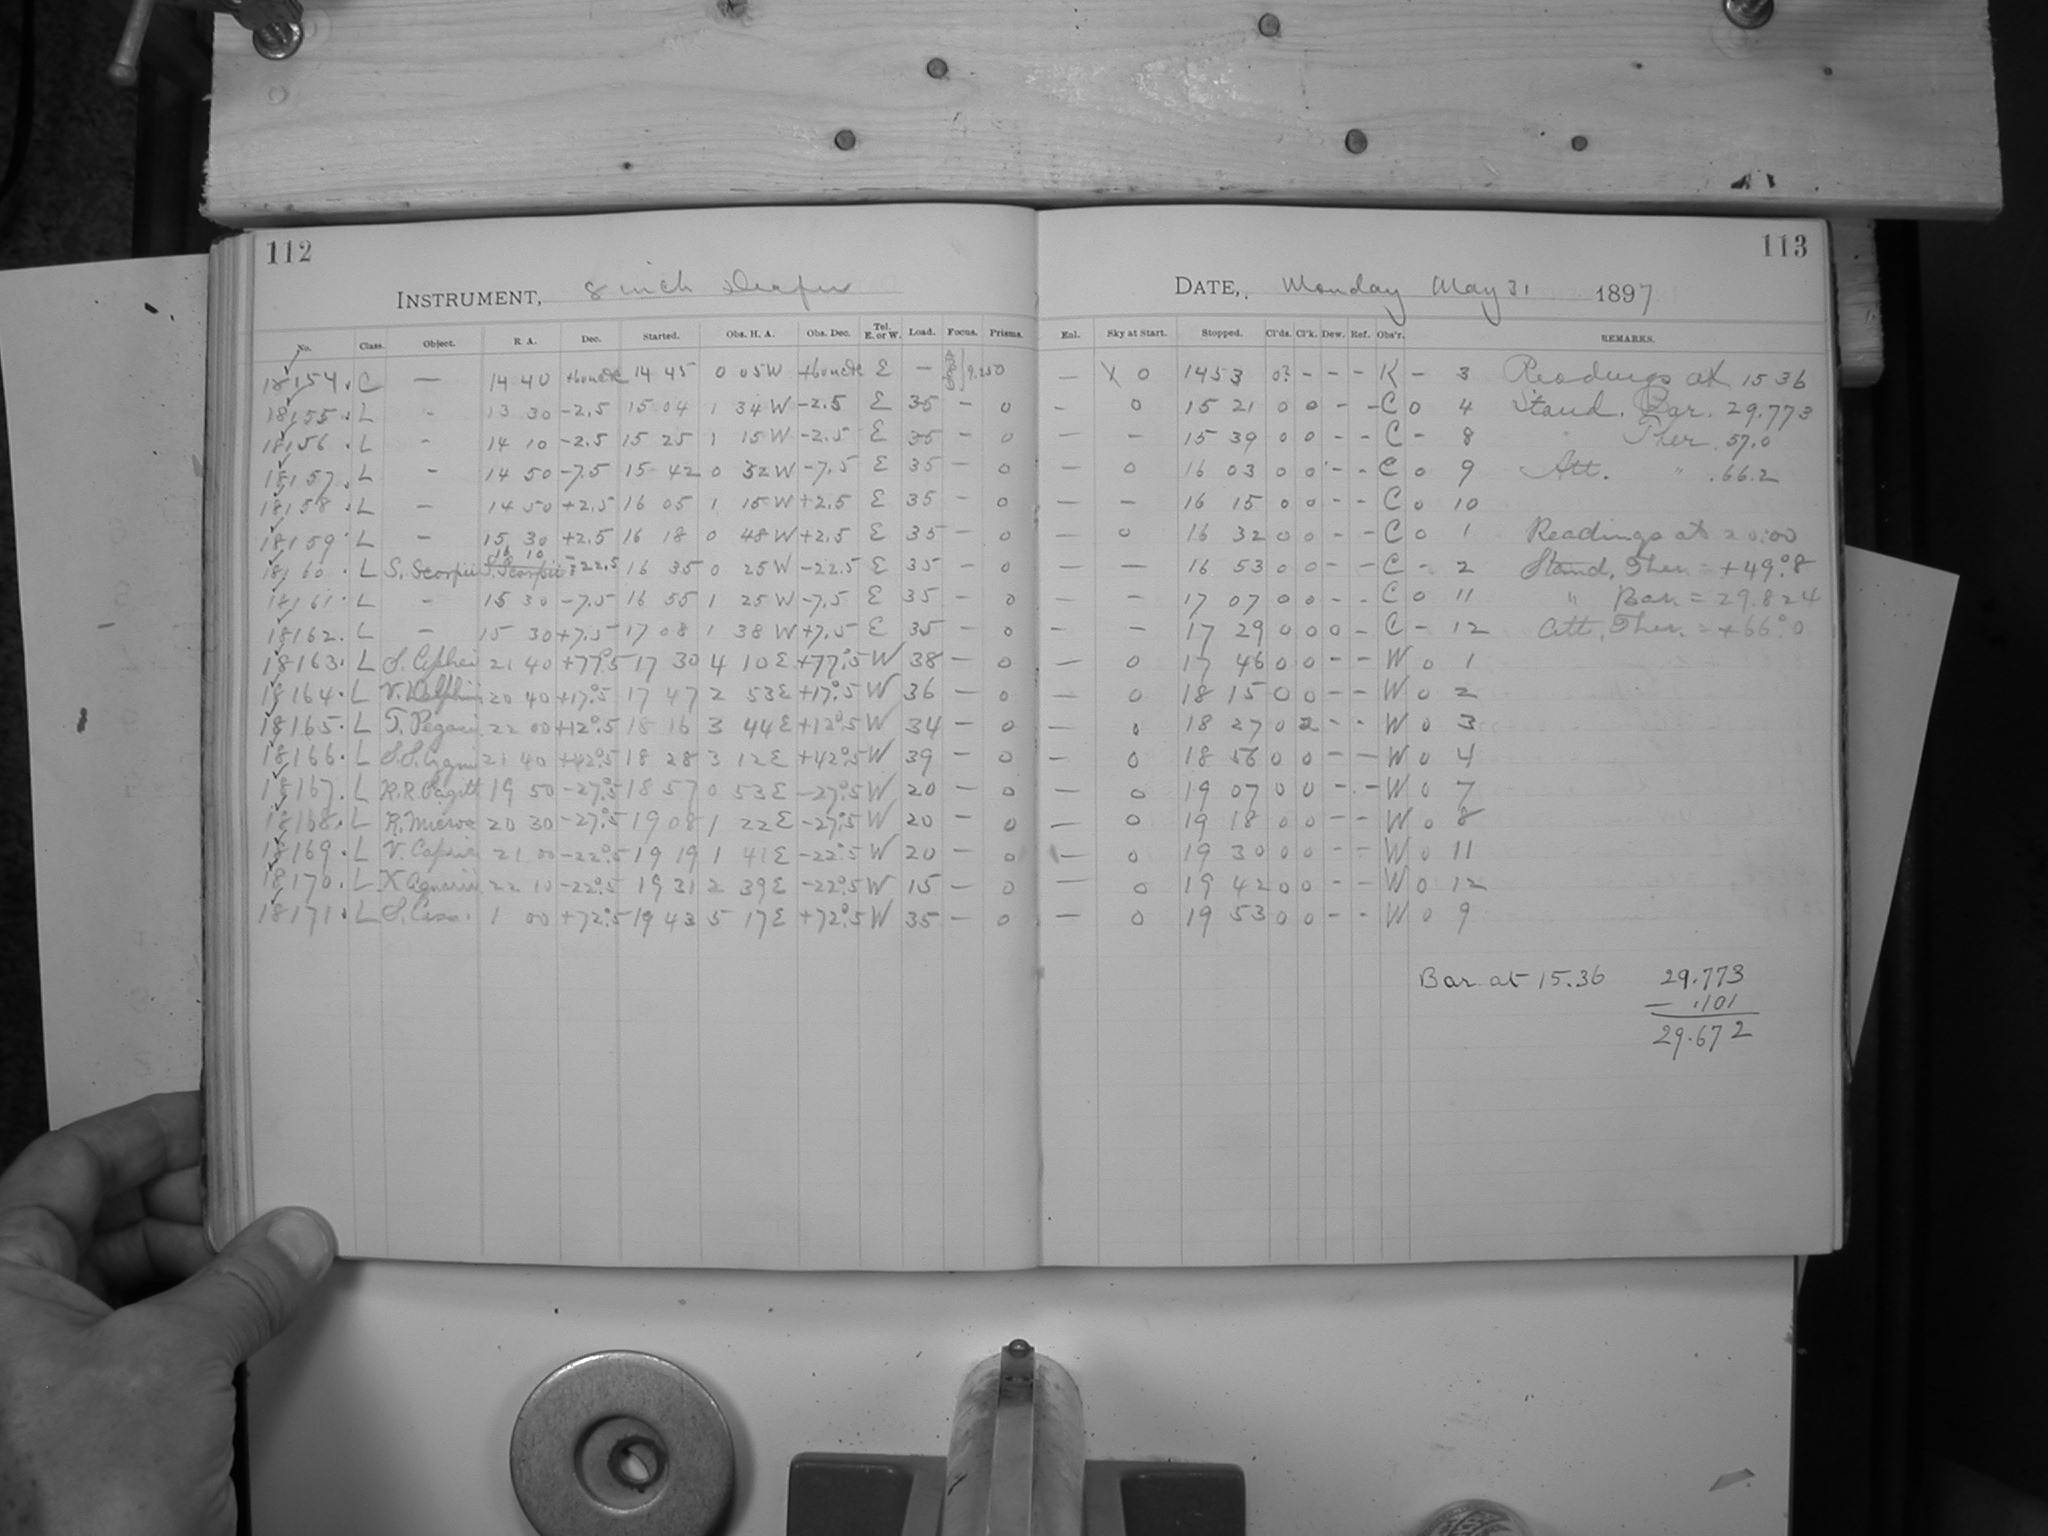 112
INSTRUMENT, 8 inch Draper
No. Class. Object. R. A. Dec. Started. Obs. H. A. Obs. Dec. Tel. E. or W. Load. Focus. Prisms.
18154. C — 14 40 14 45 0 05 W E — 9.250
18155. L - 13 30 -2.5 15 04 1 34 W -2.5 E 35 - 0
18156. L - 14 10 -2.5 15 25 1 15 W -2.5 E 35 - 0
18157. L - 14 50 -7.5 15 42 0 52 W -7.5 E 35 - 0
18158. L - 14 50 +2.5 16 05 1 15 W +2.5 E 35 - 0
18159. L - 15 30 +2.5 16 18 0 48 W +2.5 E 35 - 0
18160. L S. Scorpii 16 10 -22.5 16 35 0 25 W -22.5 E 35 - 0
18161. L - 15 30 -7.5 16 55 1 25 W -7.5 E 35 - 0
18162. L - 15 30 +7.5 17 08 1 38 W +7.5 E 35 - 0
18163. L S. Cephei 21 40 +77°.5 17 30 4 10 E +77°.5 W 38 - 0
18164. L V. Delphini 20 40 +17°.5 17 47 2 53 E +17°.5 W 36 - 0
18165. L T. Pegasi 22 00 +12°.5 18 16 3 44 E +12°.5 W 34 - 0
18166. L S.S. Cygni 21 40 +42°.5 18 28 3 12 E +42°.5 W 39 - 0
18167. L R.R. Sagitt 19 50 -27°.5 18 57 0 53 E -27°.5 W 20 - 0
18168. L R. Micros 20 30 -27°.5 19 08 1 22 E -27°.5 W 20 - 0
18169. L V. Capric 21 00 -22°.5 19 19 1 41 E -22°.5 W 20 - 0
18170. L X Aquarii 22 10 -22°.5 19 31 2 39 E -22°.5 W 15 - 0
18171. L S. Cass. 1 00 +72°.5 19 43 5 17 E +72°.5 W 35 - 0
113
DATE, Monday May 31 1897
Enl. Sky at Start. Stopped. Cl'ds. Cl'k. Dew. Ref. Obs'r. REMARKS.
— X 0 14 53 0? - - - K - 3 Readings at 15 36
- 0 15 21 0 0 - - C 0 4 Stand. Bar. 29.773
— - 15 39 0 0 - - C - 8 Ther 57.0
— 0 16 03 0 0 - - C 0 9 Att. " .66.2
— - 16 15 0 0 - - C 0 10
— 0 16 32 0 0 - - C 0 1 Readings at 20:00
— - 16 53 0 0 - - C - 2 Stand. Ther = +49°.8
— - 17 07 0 0 - - C 0 11 " Bar = 29.824
— - 17 29 0 0 0 - C - 12 Att. Ther. = +66°.0
— 0 17 46 0 0 - - W 0 1
— 0 18 15 0 0 - - W 0 2
— 0 18 27 0 2 - - W 0 3
— 0 18 56 0 0 - - W 0 4
— 0 19 07 0 0 - - W 0 7
— 0 19 18 0 0 - - W 0 8
— 0 19 30 0 0 - - W 0 11
— 0 19 42 0 0 - - W 0 12
— 0 19 53 0 0 - - W 0 9
Bar. at 15.36 29.773
— .101
29.672